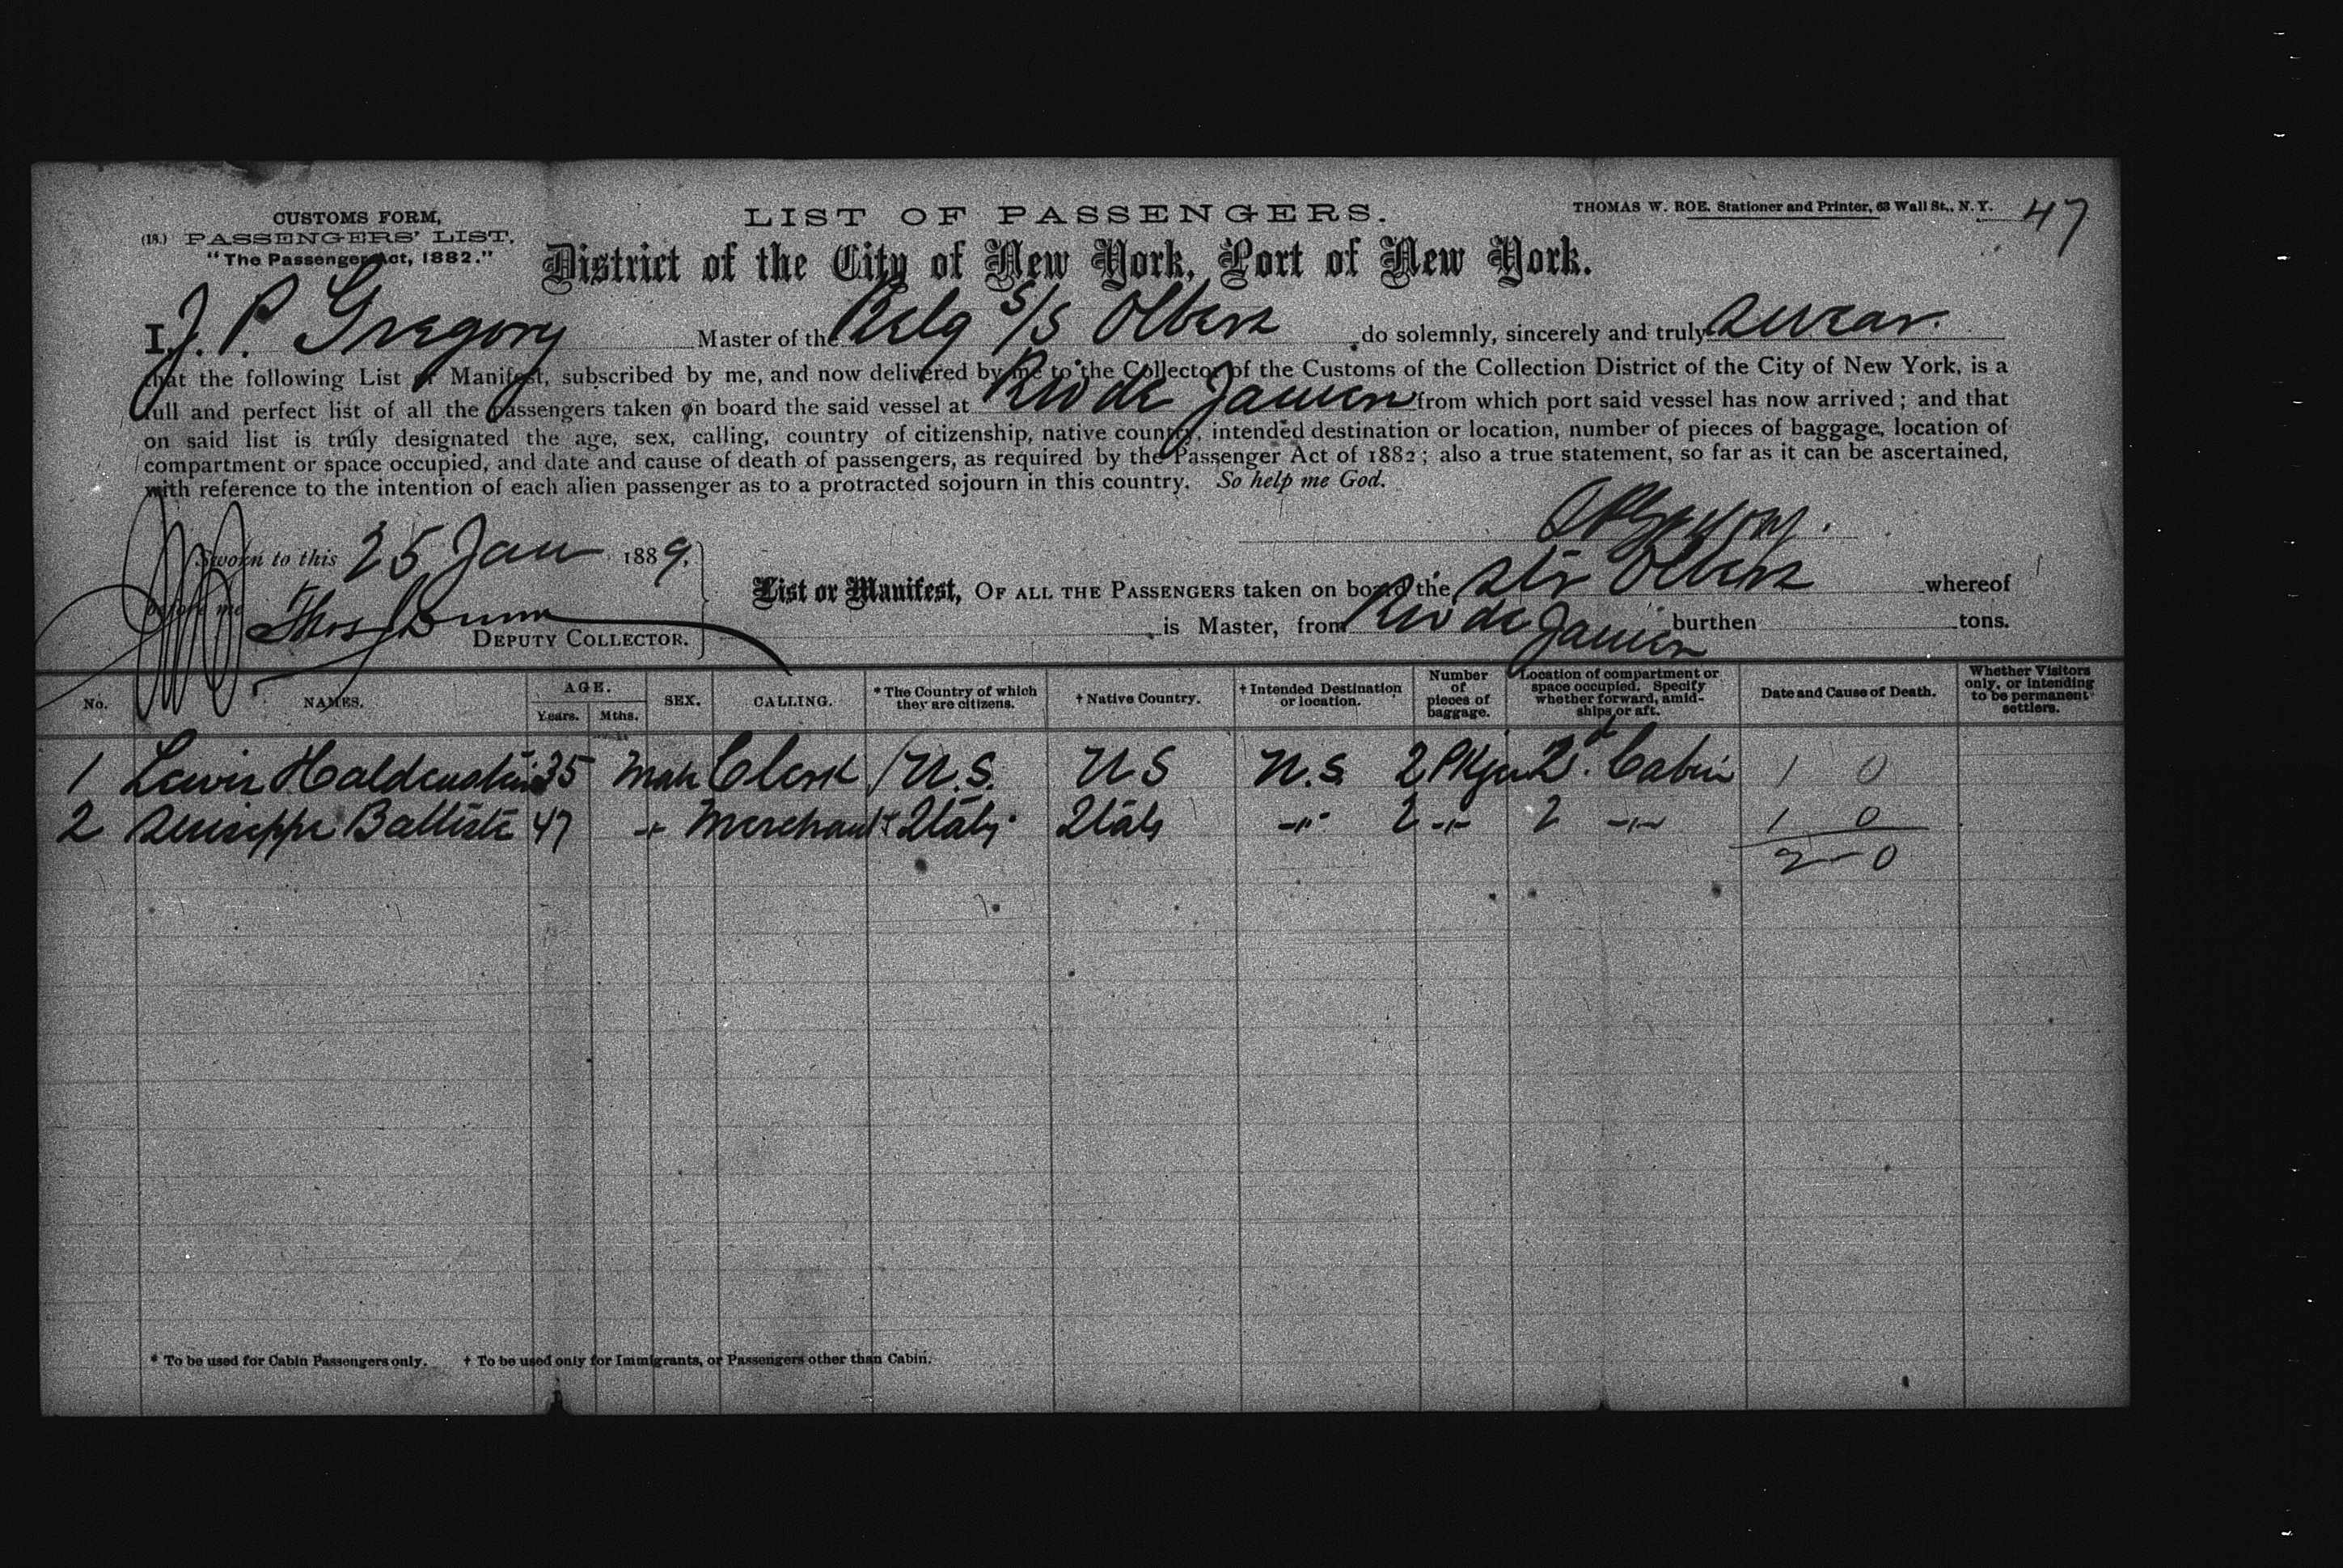 CUSTOMS FORM,
(18.) PASSENGERS' LIST.
"The Passenger Act, 1882."
LIST OF PASSENGERS.
THOMAS W. ROE. Stationer and Printer, 63 Wall St., N.Y.
47
District of the City of New York, Port of New York.
I J. P. Gregory Master of the Belg S/S Olbers do solemnly, sincerely and truly swear.
that the following List or Manifest, subscribed by me, and now delivered by me to the Collector of the Customs of the Collection District of the City of New York, is a
full and perfect list of all the passengers taken on board the said vessel at Rio de Janeiro from which port said vessel has now arrived; and that
on said list is truly designated the age, sex, calling, country of citizenship, native country, intended destination or location, number of pieces of baggage, location of
compartment or space occupied, and date and cause of death of passengers, as required by the Passenger Act of 1882; also a true statement, so far as it can be ascertained,
with reference to the intention of each alien passenger as to a protracted sojourn in this country. So help me God.
JPGregory.
Sworn to this 25 Jan 1889.
before me
Thos Dunn
DEPUTY COLLECTOR.
List or Manifest, OF ALL THE PASSENGERS taken on board the Str Olbers whereof
is Master, from Rio de Janeiro burthen tons.
No. NAMES. AGE. Years. Mths. SEX. CALLING. * The Country of which they are citizens. † Native Country. † Intended Destination or location. Number of pieces of baggage. Location of compartment or space occupied. Specify whether forward, amidships or aft. Date and Cause of Death. Whether Visitors only, or intending to be permanent settlers.
1 Lewis Haldenstein 35 Male Clerk U.S. U S U.S. 2 Pkges 2d. Cabin 1 0
2 Guiseppe Battiste 47 -"- Merchant Italy Italy -"- 2 -"- 2 -"- 1 0
2-0
* To be used for Cabin Passengers only. † To be used only for Immigrants, or Passengers other than Cabin.